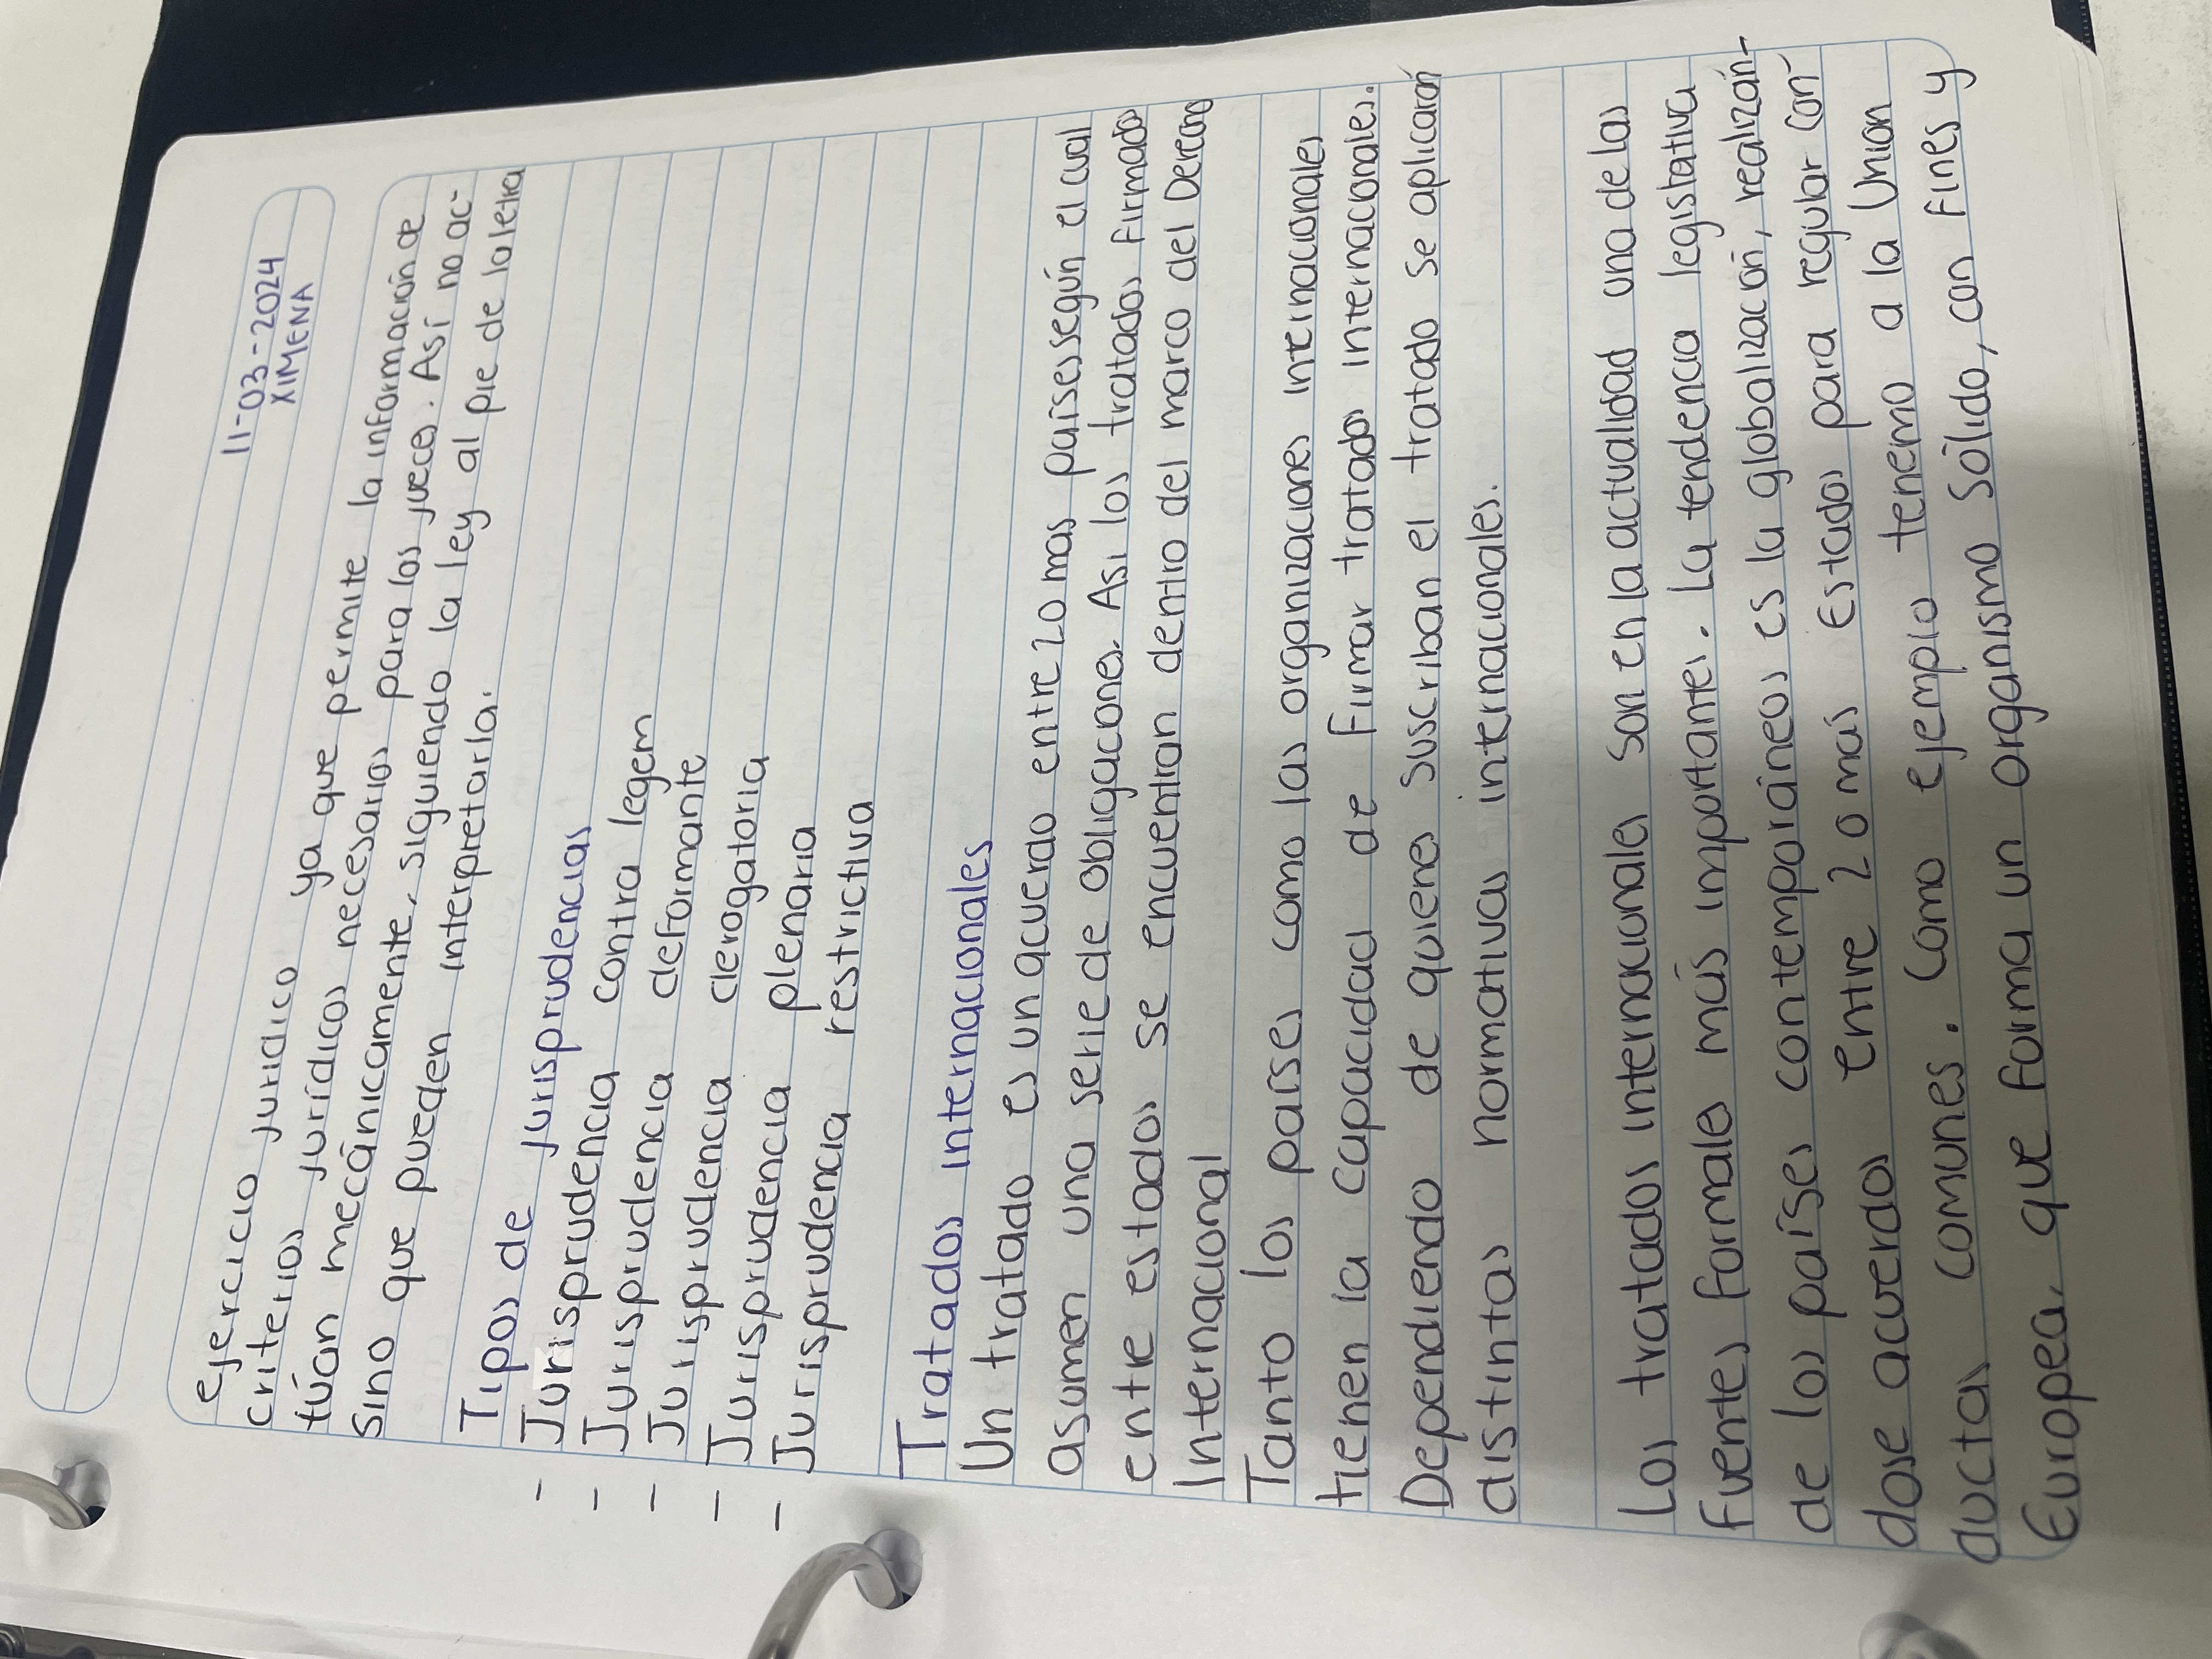 11-03-2024
XIMENA
ejercicio juridico ya que permite la información de
criterios jurídicos necesarios para los jueces. Así no ac-
túan mecánicamente, siguiendo la ley al pie de la letra
sino que pueden interpretarla.
Tipos de jurisprudencias
- Jurisprudencia contra legem
- Jurisprudencia deformante
- Jurisprudencia derogatoria
- Jurisprudencia plenaria
- Jurisprudencia restrictiva
Tratados internacionales
Un tratado es un acuerdo entre 2 o mas paises según el cual
asumen una serie de obligaciones. Asi los tratados firmados
entre estados se encuentran dentro del marco del Derecho
Internacional
Tanto los paises como las organizaciones internacionales
tienen la capacidad de firmar tratados internacionales.
Dependiendo de quienes suscriban el tratado se aplicarán
distintas normativas internacionales.
Los tratados internacionales son en la actualidad una de las
fuentes formales más importantes. La tendencia legistativa
de los países contemporáneos es la globalización, realizán-
dose acuerdos entre 2 o más Estados para regular con-
ductas comunes. Como ejemplo tenemo a la Union
Europea, que forma un organismo sólido, con fines y